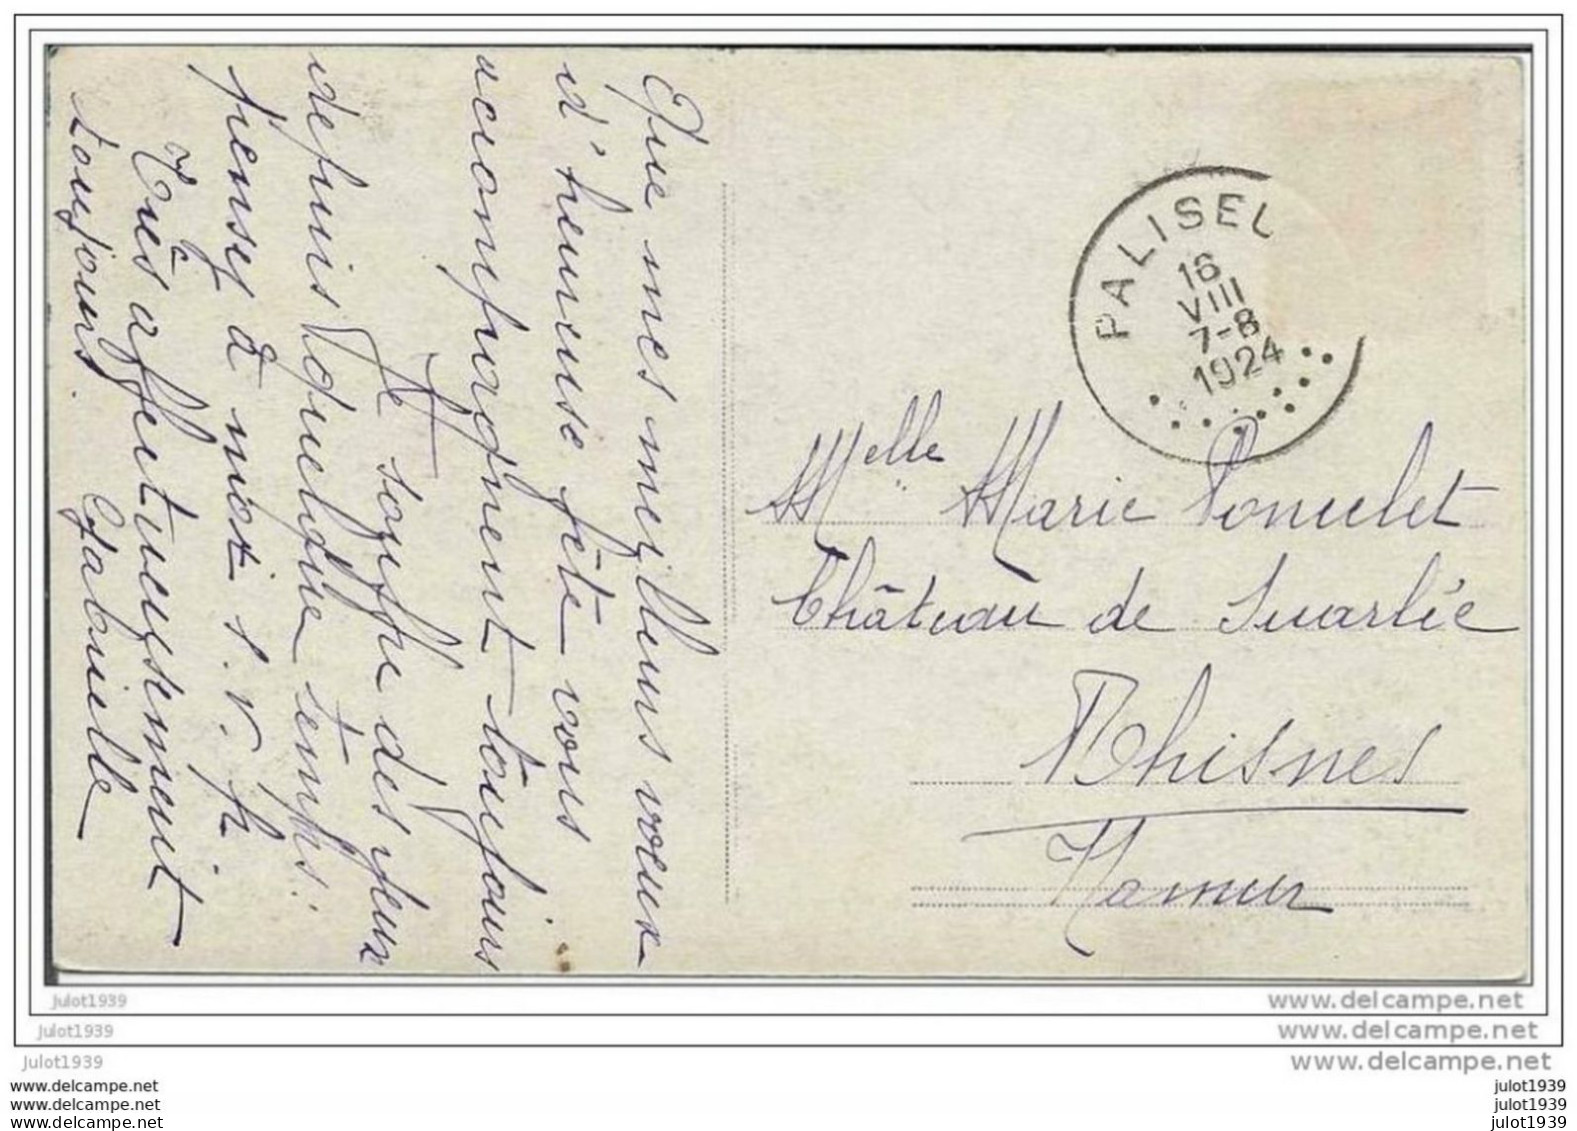 Que mes meilleurs vœux
d'heureuse fête vous
accompagnent toujours
Je souffre des yeux
depuis quelque temps.
pensez à moi s. v. p.
Très affectueusement
toujours.
Gabrielle
PALISEU
16
VIII
7-8
1924
Melle Marie Poncelet
Château de Suarlée
Rhisnes
Namur
julot1939
www.delcampe.net
julot1939
www.delcampe.net
julot1939
www.delcampe.net
www.delcampe.net
julot1939
www.delcampe.net
julot1939
www.delcampe.net
julot1939